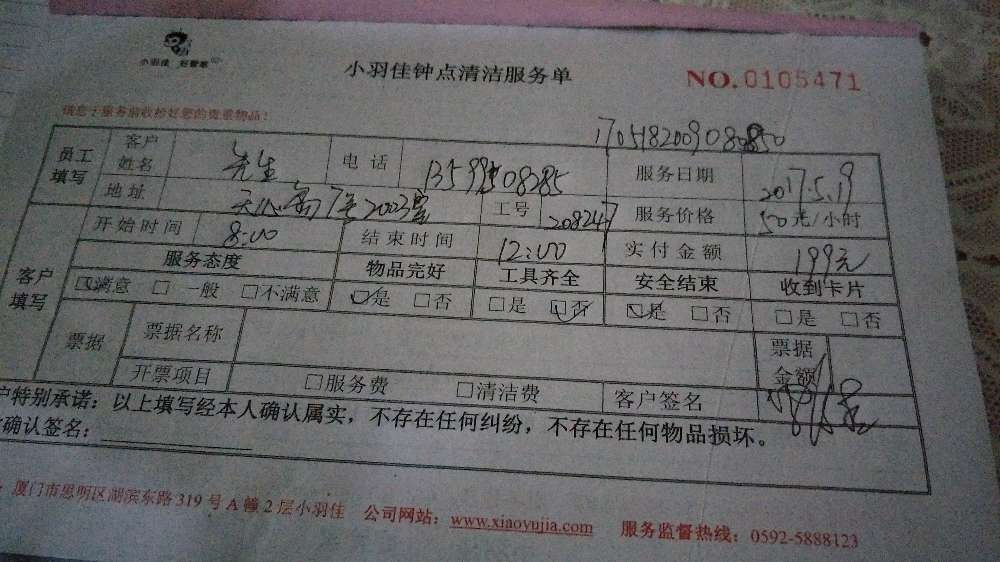 小羽佳 好管家
小羽佳钟点清洁服务单
NO.0105471
请您于服务前收拾好您的贵重物品!
员工填写
客户姓名 先生 电话 服务日期 2017.5.19
地址 工号 208247 服务价格 50元/小时
客户填写
开始时间 8:00 结束时间 12:00 实付金额 199元
服务态度 物品完好 工具齐全 安全结束 收到卡片
☑满意 □一般 □不满意 ☑是 □否 □是 ☑否 ☑是 □否 □是 □否
票据 票据名称 票据金额
开票项目 □服务费 □清洁费 客户签名
户特别承诺:以上填写经本人确认属实,不存在任何纠纷,不存在任何物品损坏。
确认签名:
厦门市思明区湖滨东路319号A幢2层小羽佳 公司网站:www.xiaoyujia.com 服务监督热线:0592-5888123